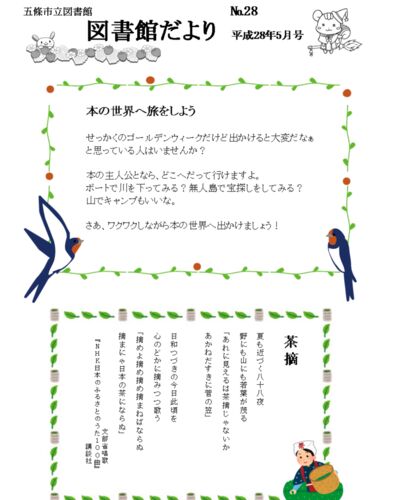 五條市立図書館
図書館だより
No.28
平成28年5月号
本の世界へ旅をしよう
せっかくのゴールデンウィークだけど出かけると大変だなぁ
と思っている人はいませんか？
本の主人公となら、どこへだって行けますよ。
ボートで川を下ってみる？無人島で宝探しをしてみる？
山でキャンプもいいな。
さあ、ワクワクしながら本の世界へ出かけましょう！
茶摘
夏も近づく八十八夜
野にも山にも若葉が茂る
「あれに見えるは茶摘じゃないか
あかねだすきに菅の笠」
日和つづきの今日此頃を
心のどかに摘みつつ歌う
「摘めよ摘め摘め摘まねばならぬ
摘まにゃ日本の茶にならぬ」
文部省唱歌
『NHK日本のふるさとのうた100曲』
講談社